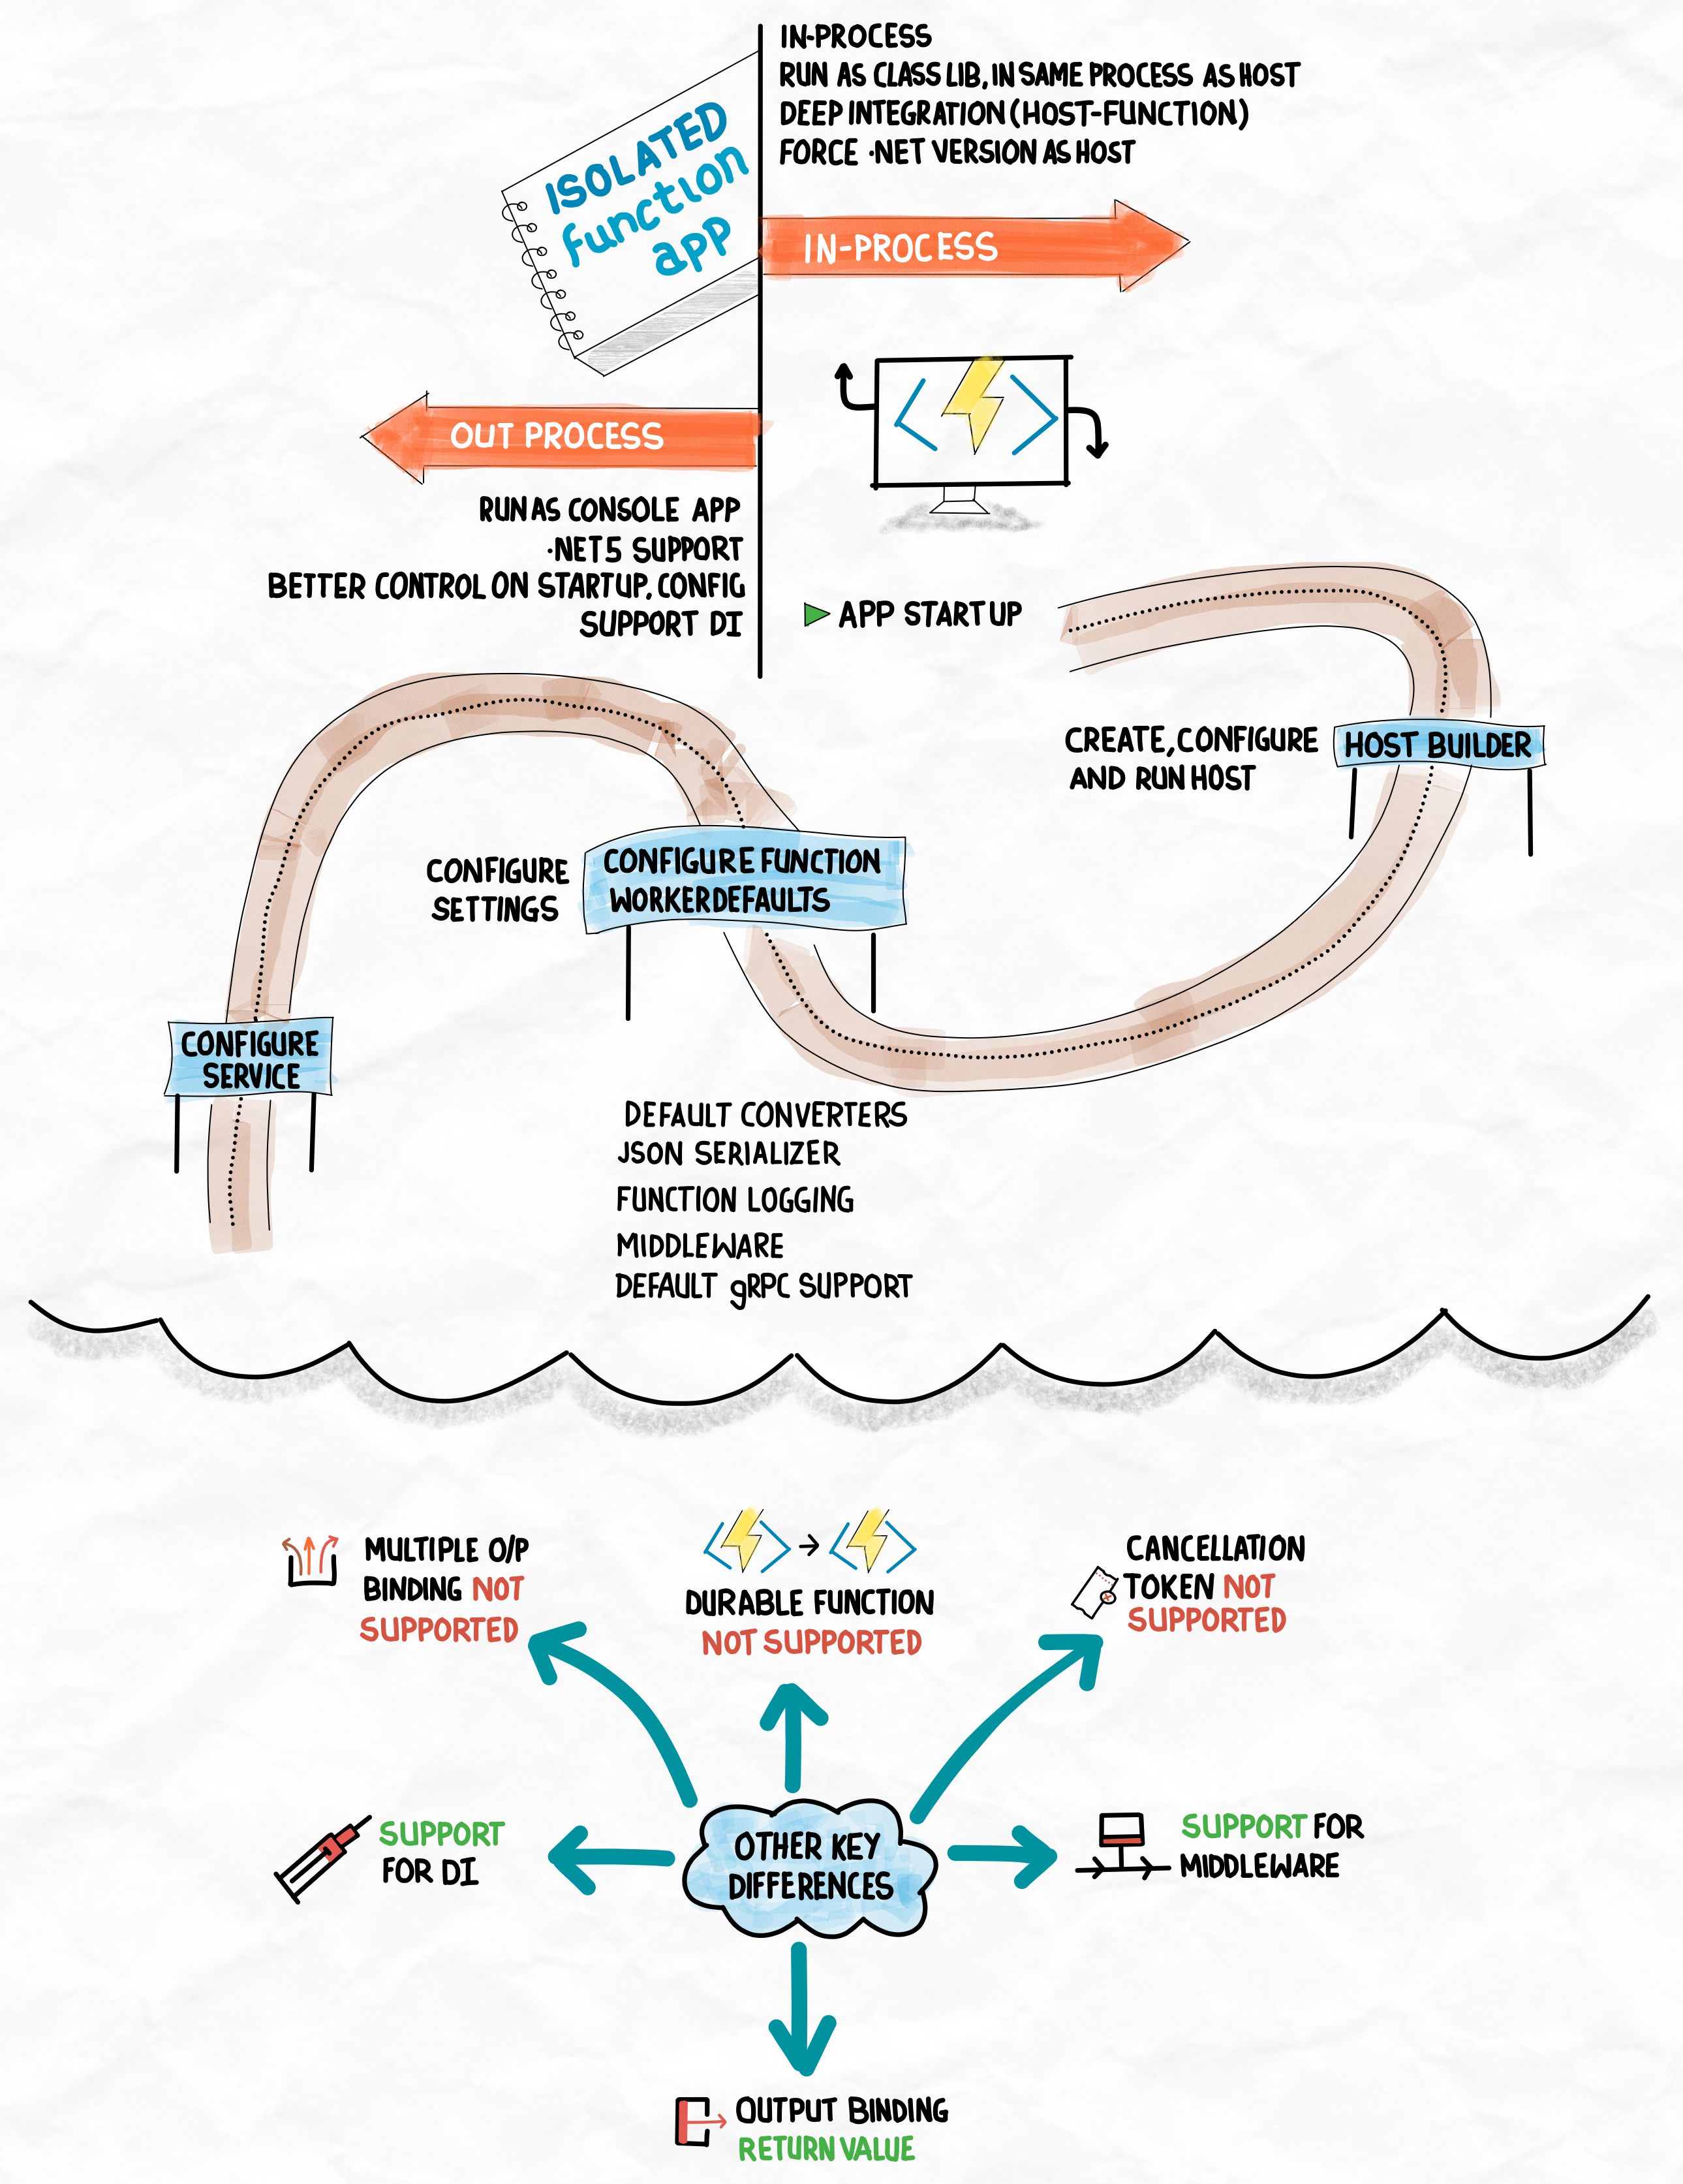 IN-PROCESS
RUN AS CLASS LIB, IN SAME PROCESS AS HOST
DEEP INTEGRATION (HOST-FUNCTION)
FORCE .NET VERSION AS HOST
ISOLATED
function
app
IN-PROCESS
OUT PROCESS
RUN AS CONSOLE APP
.NET5 SUPPORT
BETTER CONTROL ON STARTUP, CONFIG
SUPPORT DI
APP STARTUP
CREATE, CONFIGURE
AND RUN HOST
HOST BUILDER
CONFIGURE
SETTINGS
CONFIGURE FUNCTION
WORKERDEFAULTS
CONFIGURE
SERVICE
DEFAULT CONVERTERS
JSON SERIALIZER
FUNCTION LOGGING
MIDDLEWARE
DEFAULT gRPC SUPPORT
MULTIPLE O/P
BINDING NOT
SUPPORTED
DURABLE FUNCTION
NOT SUPPORTED
CANCELLATION
TOKEN NOT
SUPPORTED
SUPPORT
FOR DI
OTHER KEY
DIFFERENCES
SUPPORT FOR
MIDDLEWARE
OUTPUT BINDING
RETURN VALUE